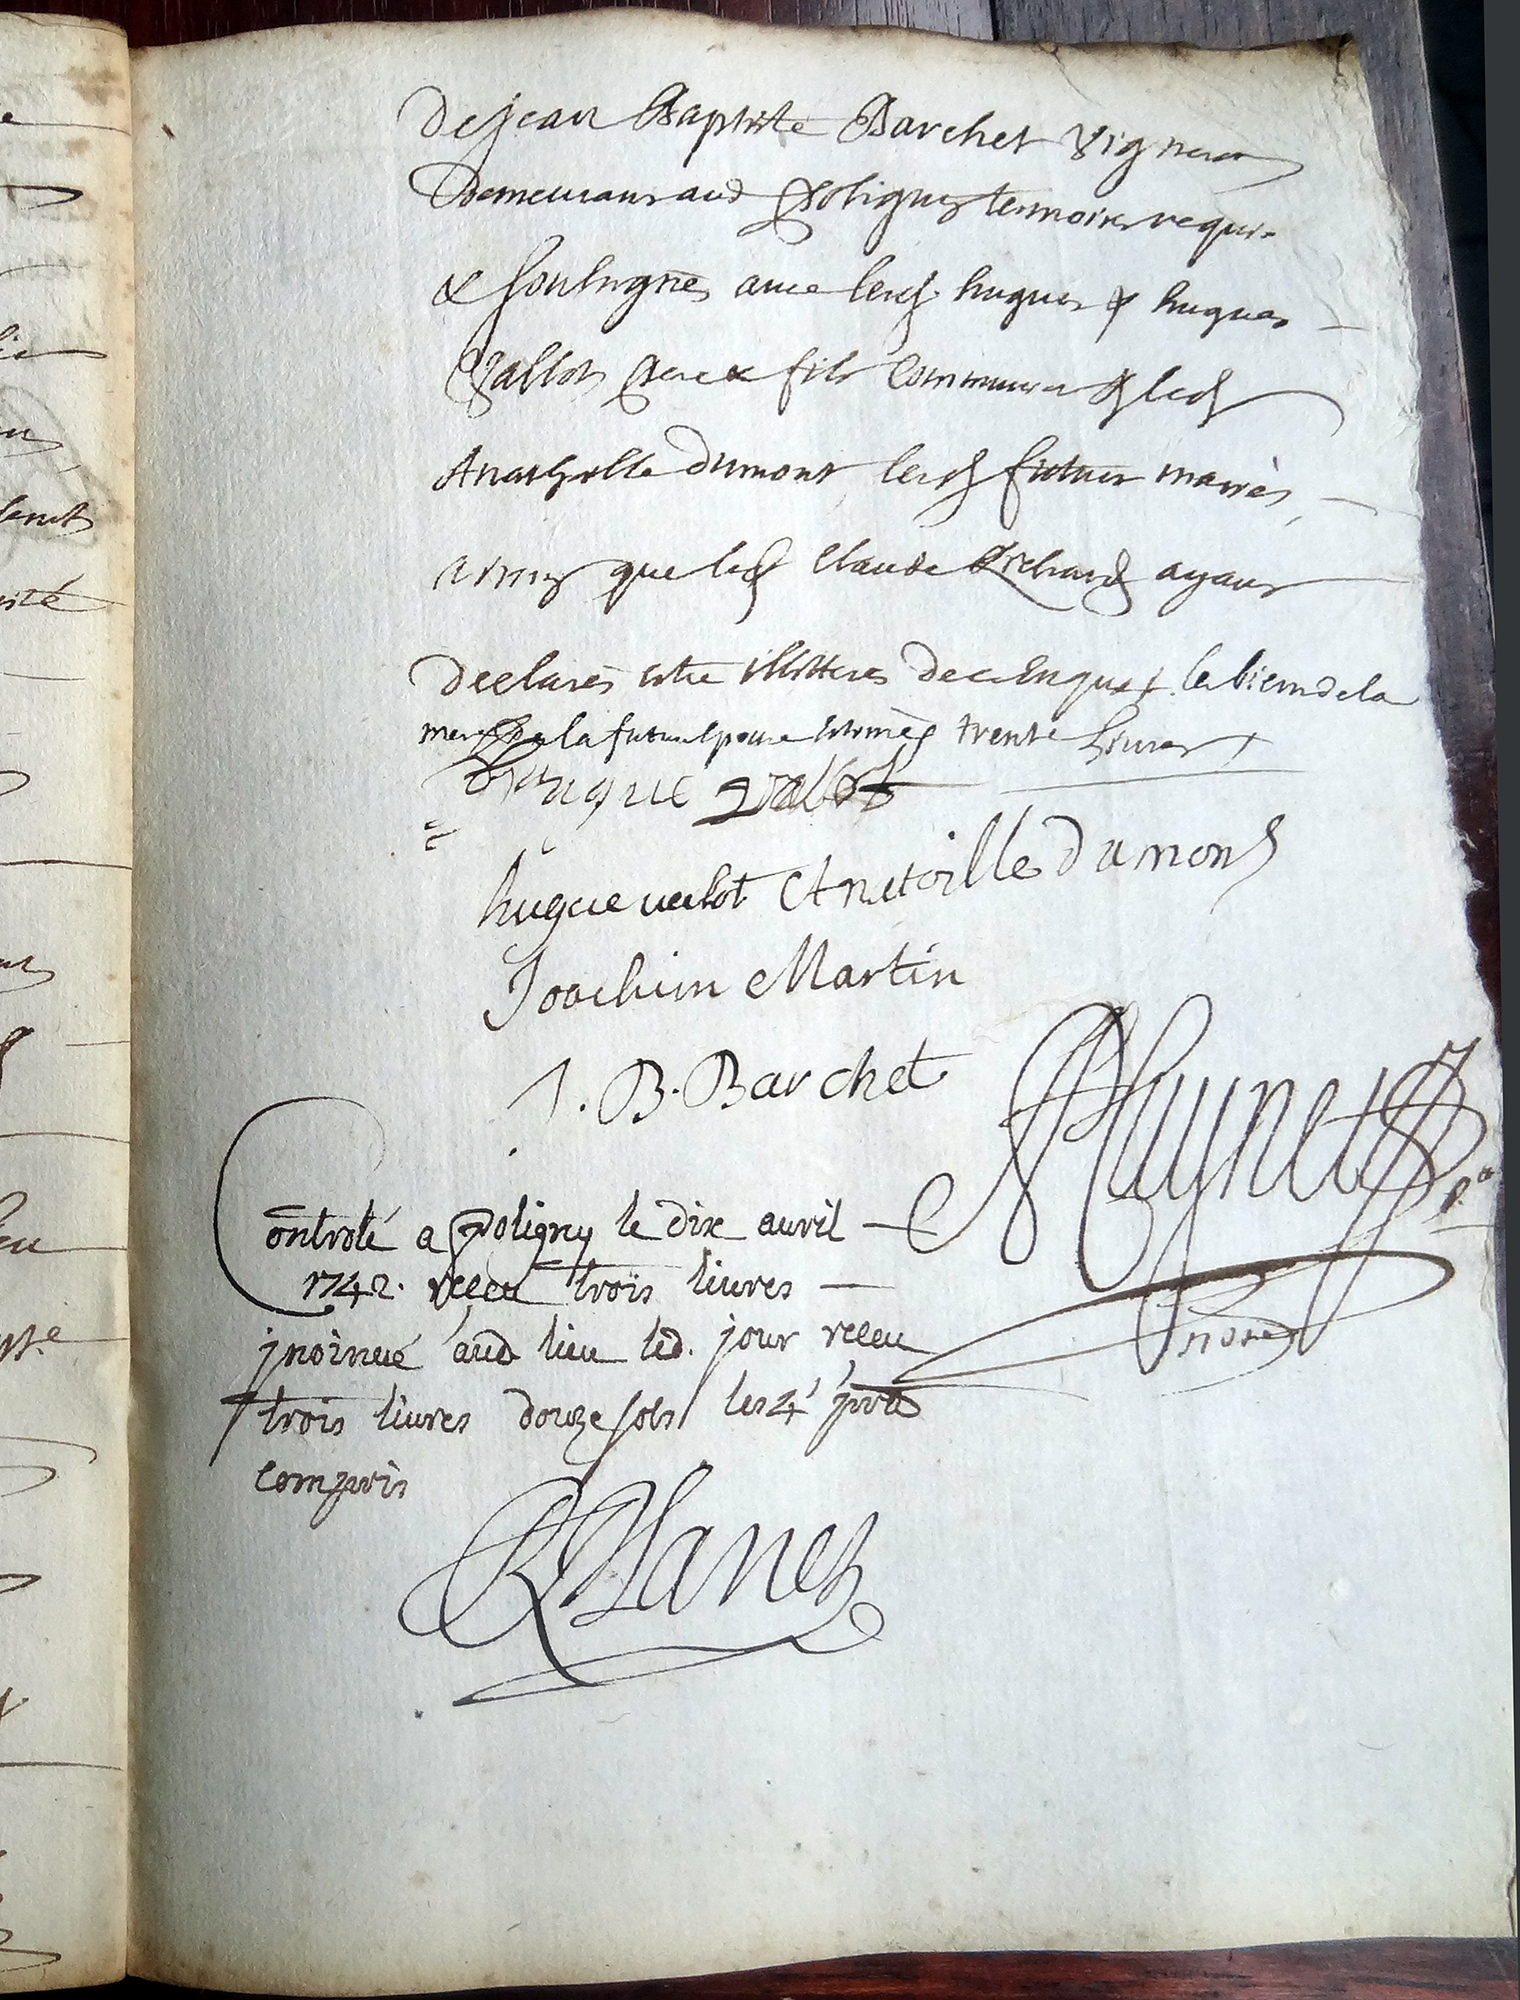 De jean Baptiste Barchet Vigneron
Demeurans aud Poligny temoins requis
& soubsignés avec lesd. hugues & hugues
Vallot pere & fils Communes & led
Anathoille dumont lesd futurs mariés,
que led Claude Richard ayans
Declarés estre illitteres de ce Enquis + les biens de la
mere de la future Epouse estimés trente Livres +
hugue valot
hugue vallot Anatoille dumon
Joachim Martin
J. B. Barchet
Huguet
Controlé a Poligny le dix auvril
1742. receu trois liures
jnsinué aud lieu led. jour receu
trois liures douze sols les 4s pr l
compris